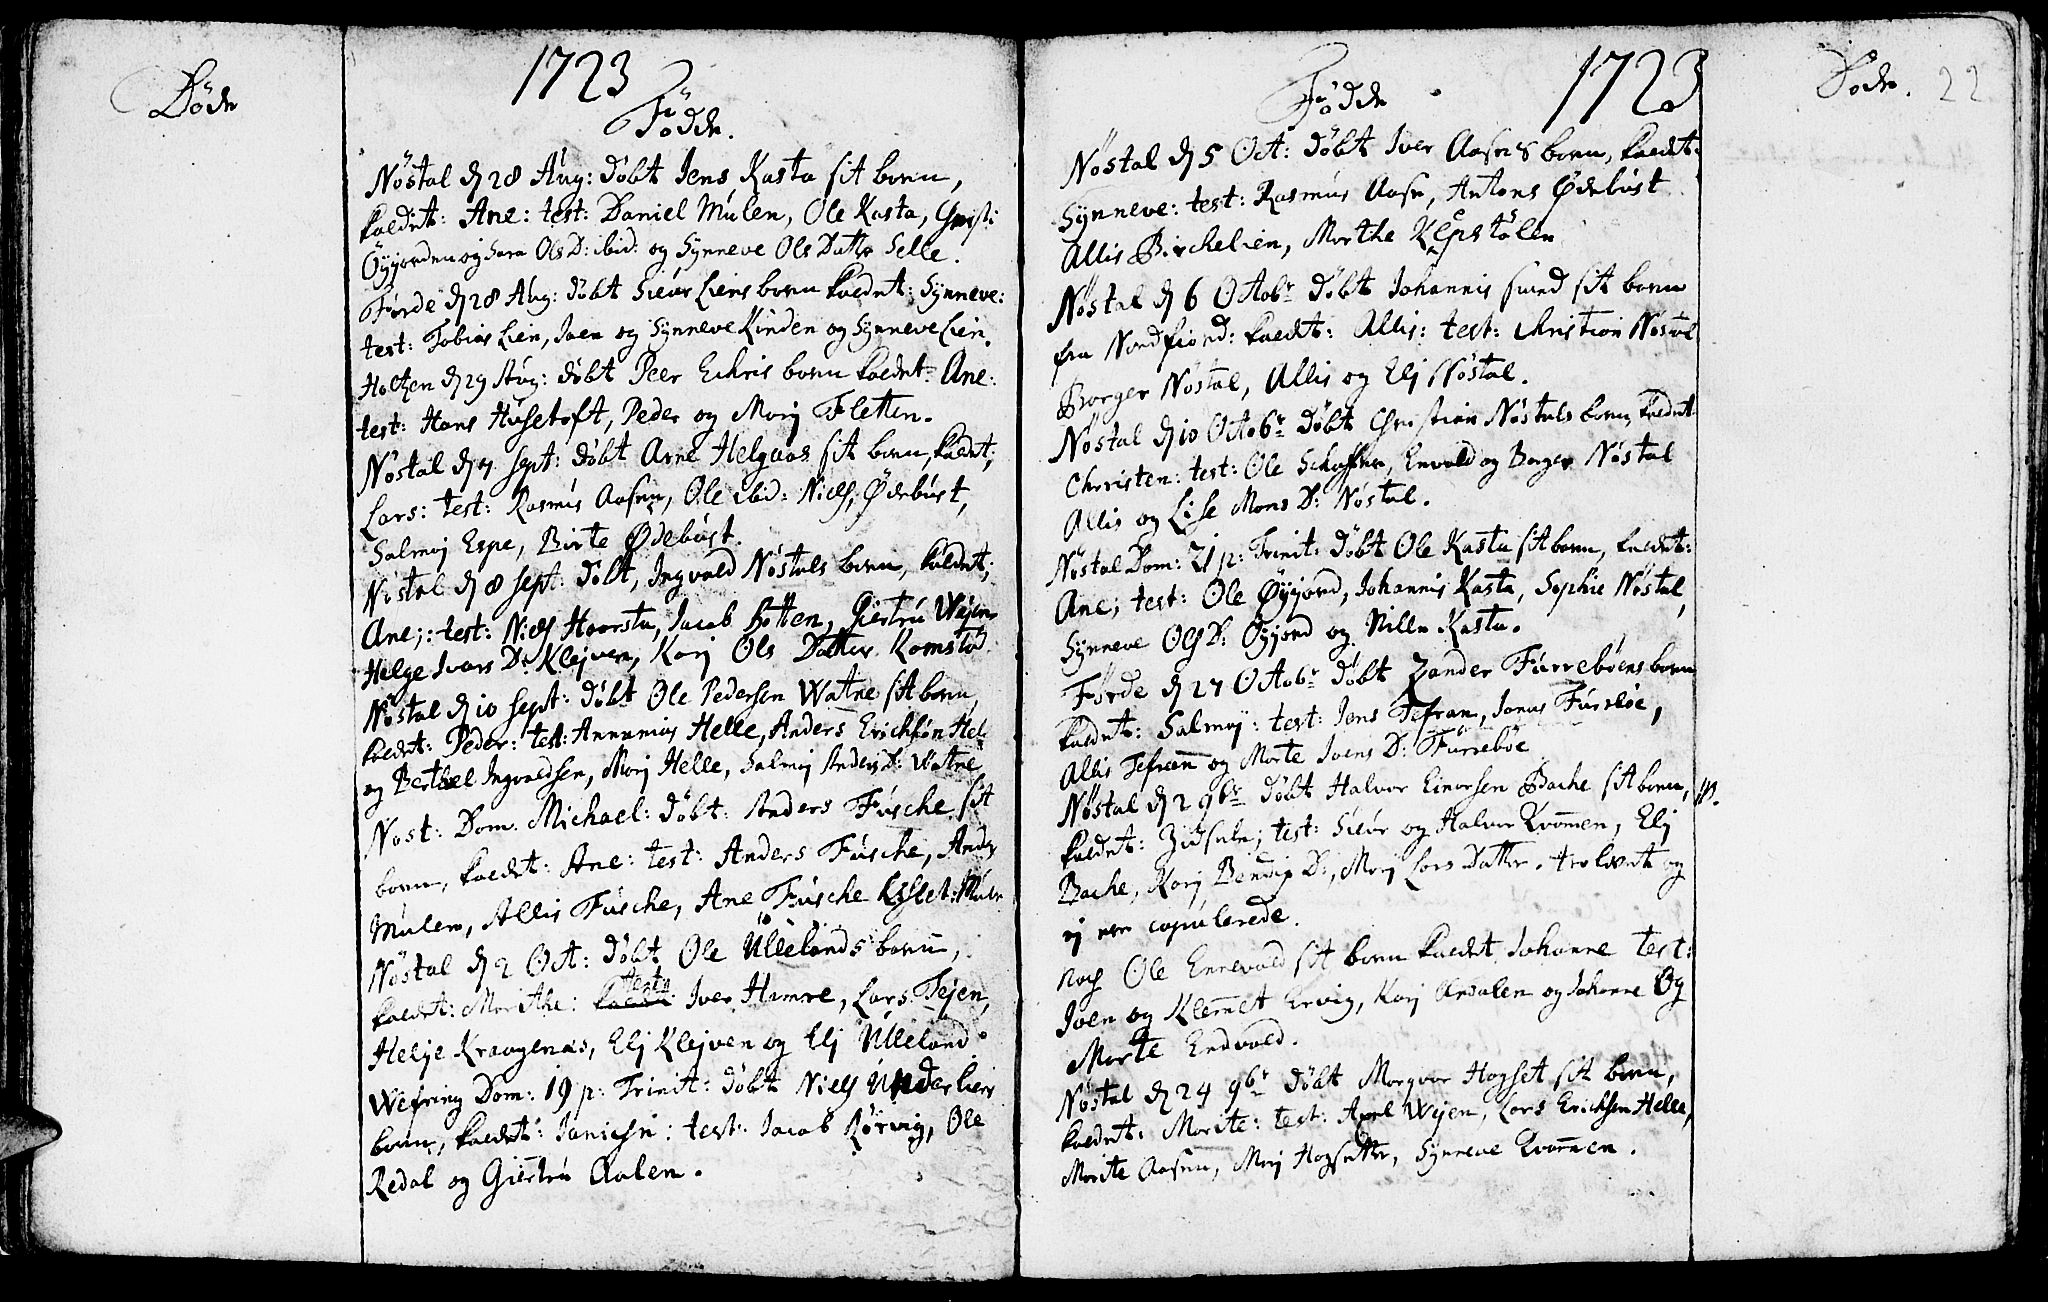 Döde
1723
Födde.
Nöstal d 28 Aug: döbt Jens Kasta sit barn,
kaldet: Ane: test: Daniel Mulen, Ole Kasta, Christi
Öÿjorden og Sara Ols D: ibid: og Synneve Ols Datter Selle.
Förde d 28 Aug: döbt Siur Liens barn kaldet: Synneve:
test: Tobias Lien, Joen og Synneve Kinden og Synneve Lien.
Holtzen d 29 Aug: döbt Peer Eckris barn kaldet: Ane:
test: Hans Husetoft, Peder og Marj Fletten.
Nöstal d 7 Sept: döbt Arne Helgaas sit barn, kaldet;
Lars: test: Rasmus Aasen, Ole ibid: Niels Ødebust,
Salmoj Espe, Birte Ødebust.
Nöstal d 8 Sept: döbt, Ingvald Nöstals barn, kaldet;
Ane;: test: Niels Hoorsta, Jacob Botten, Giertru Weien
Helge Ivars D: Klejven, Karj Ols Datter Komstad
Nöstal d 10 Sept: döbt Ole Pedersen Watne sit barn,
kaldet: Peder: test: Annanias Helle, Anders Erichsön Hel:
og Berthel Ingvaldsen, Marj Helle, Salmoj Anders D: Watne
Nöst: Dom. Michael: döbt: Anders Fusche sit
barn, kaldet: Ane: test: Anders Fusche, Anders
Mulen, Allis Fusche, Ane Fusche Lislet: Mulen
Nöstal d 2 Oct: döbt Ole Ullelands barn,
kaldet: Marithe: test: Iver Hamre, Lars Tejen,
Helje Kraagenæs, Elj Klejven og Elj Ulleland
Wefring Dom: 19 p: Trinit: döbt Niels Underliens
barn, kaldet: Janichen: test: Jacob Rörvig, Ole
Redal og Giertru Aalen.
Födde
1723
Nöstal d 5 Oct: döbt Iver Aasens barn, kaldet:
Synneve: test: Rasmus Aasen, Antons Ødebust
Allis Birchelien, Marthe Klepstölen
Nöstal d 6 Octobr döbt Johannis sund sit barn
fra Nordfiord: kaldet: Allis: test: Christian Nöstal
Borger Nöstal, Allis og Elj Nöstal.
Nöstal d 10 Octobr döbt Christian Nöstals barn, kaldet
Christen: test: Ole Schaffer, Envold og Borger Nöstal
Allis og Lise Mons D: Nöstal.
Nöstal Dom: 21 p: Trinit: döbt Ole Kasta sit barn, kaldet:
Ane; test: Ole Öÿjord, Johannis Kasta, Sophie Nöstal,
Synneve Ols D: Öÿjord og Nille Kasta.
Förde d 27 Octobr döbt Zander Furreböens barn
kaldet: Salmoj: test: Jens Tefran, Jonas Fureböe,
Allis Tefran og Marte Joens D: Furreböe
Nöstal d 2 9br döbt Halvor Einersen Bache sit barn,
kaldet: Zidselu; test: Siur og Halvor Kvamen, Elj
Bache, Karj Bendix D:, Marj Lars Datter. trolovet og
ej vare copulerede.
noch Ole Ennevald sit barn kaldet Johanne test:
Joen og Klemet Ervig, Karj Ardalen og Johanne Og
Marte Endvald.
Nöstal d 24 9br döbt Morgvar Hogset sit barn,
kaldet: Marite: test: Axel Wejen, Lars Erichsen Helle,
Marite Aasen, Marj Hogsetter, Synneve Kvamen.
Döde.
22